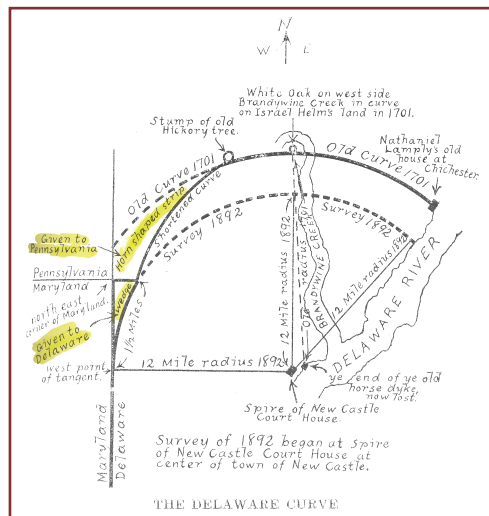 N
W E
White Oak on west side
Brandywine Creek in curve
on Israel Helm's land in 1701.
Stump of old
Hickory tree.
Nathaniel
Lamply's old
house at
Chichester.
Old Curve 1701
Old Curve 1701
Horn shaped strip
Shortened curve
Survey 1892
Survey 1892
Given to
Pennsylvania
Pennsylvania
Maryland
north east
corner of Maryland.
Wedge
Given to
Delaware
1½ Miles
West point
of tangent.
12 Mile radius 1892
12 Mile radius 1892
Old radius 1701
12 Mile radius 1892
BRANDYWINE CREEK
DELAWARE RIVER
ye end of ye old
horse dyke,
now lost.
Spire of New Castle
Court House.
Maryland
Delaware
Survey of 1892 began at Spire
of New Castle Court House at
center of town of New Castle.
THE DELAWARE CURVE